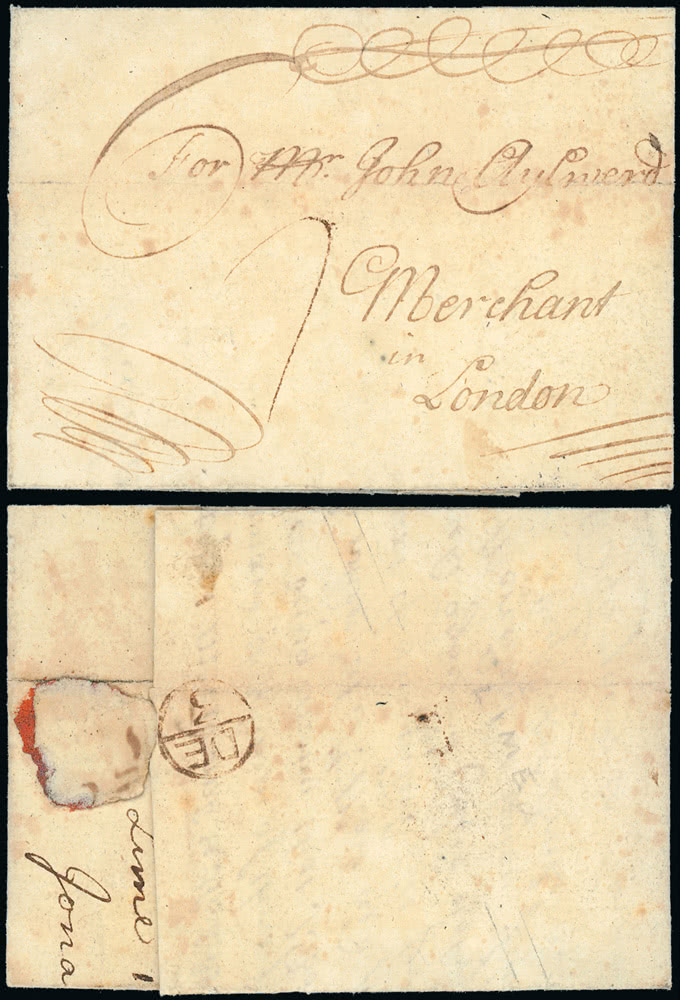 For Mr. John Aylwerd
Merchant
in
London
DE
Lime
Jona